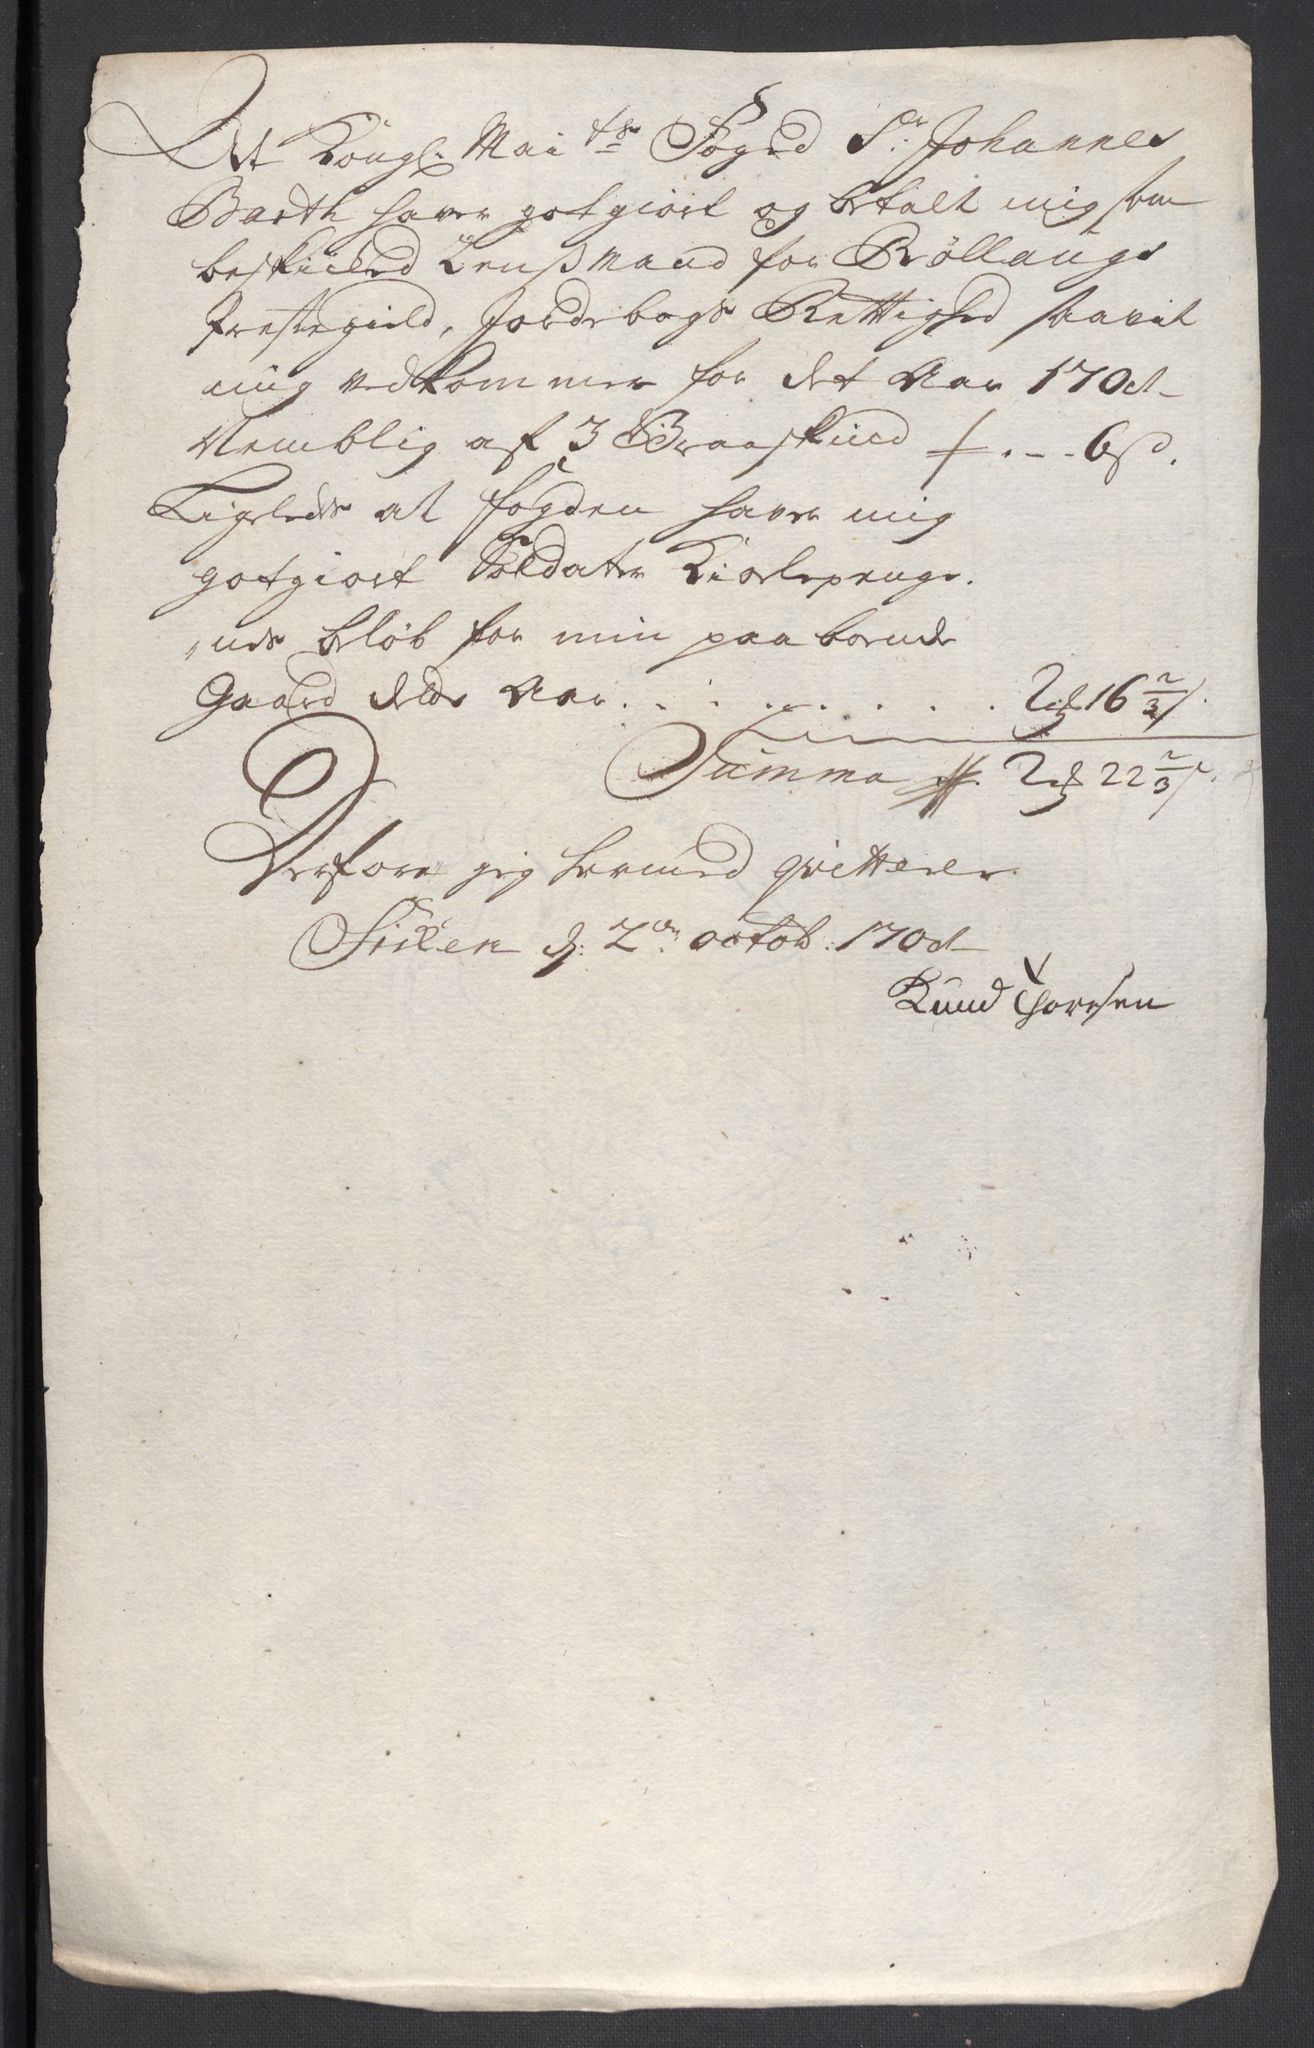 At Kongl: Mai ts Foged Sr: Johannes
Barth haver gotgiort og betalt mig som
beskicked Lenßmand for Röllaugs
Prestegield, Jordebogs Rettighed saavit
mig vedkommer for det Aar 170
Nemblig af 3 Graaskind ... 6 s.
Ligeleds at fogden haver mig
gotgiort Soldater Kiolepenge-
nes beløb for min paaboende
Gaard dette Aar . . . . . . . . 2 16 2/3 s.
Summa 2 22 2/3 s.
Derfore jeg hermed qvitterer
d: 2en octob: 170
Knud Thoresen